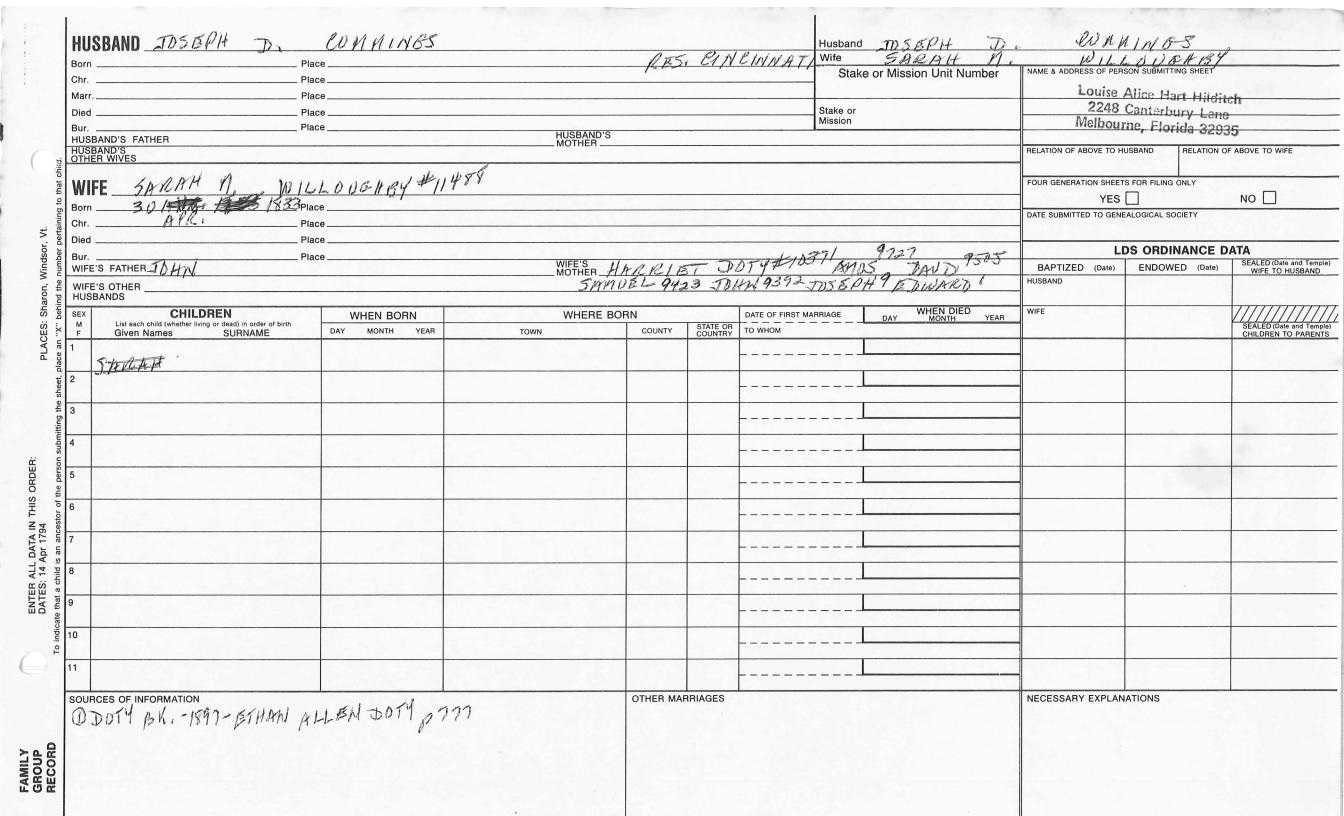 HUSBAND JOSEPH D. CUMMINGS
Born Place RES. CINCINNATI
Chr. Place
Marr. Place
Died Place
Bur. Place
HUSBAND'S FATHER HUSBAND'S MOTHER
HUSBAND'S OTHER WIVES
Husband JOSEPH D. CUMMINGS
Wife SARAH N. WILLOUGHBY
Stake or Mission Unit Number
Stake or Mission
NAME & ADDRESS OF PERSON SUBMITTING SHEET
Louise Alice Hart Hilditch
2248 Canterbury Lane
Melbourne, Florida 32935
RELATION OF ABOVE TO HUSBAND RELATION OF ABOVE TO WIFE
FOUR GENERATION SHEETS FOR FILING ONLY
YES NO
DATE SUBMITTED TO GENEALOGICAL SOCIETY
WIFE SARAH N. WILLOUGHBY #11488
Born 30 1833 Place
Chr. APR. Place
Died Place
Bur. Place
WIFE'S FATHER JOHN WIFE'S MOTHER HARRIET DOTY #10371 AMOS 9727 DAVD 9505
SAMUEL 9423 JOHN 9392 JOSEPH 9 EDWARD 1
WIFE'S OTHER HUSBANDS
LDS ORDINANCE DATA
BAPTIZED (Date) ENDOWED (Date) SEALED (Date and Temple) WIFE TO HUSBAND
HUSBAND
WIFE
SEALED (Date and Temple) CHILDREN TO PARENTS
SEX M F
CHILDREN
List each child (whether living or dead) in order of birth
Given Names SURNAME
WHEN BORN
DAY MONTH YEAR
WHERE BORN
TOWN COUNTY STATE OR COUNTRY
DATE OF FIRST MARRIAGE
TO WHOM
WHEN DIED
DAY MONTH YEAR
1 SARAH
2
3
4
5
6
7
8
9
10
11
SOURCES OF INFORMATION
① DOTY BK. -1897- ETHAN ALLEN DOTY p 777
OTHER MARRIAGES
NECESSARY EXPLANATIONS
PLACES: Sharon, Windsor, Vt.
ENTER ALL DATA IN THIS ORDER:
DATES: 14 Apr 1794
To indicate that a child is an ancestor of the person submitting the sheet, place an "X" behind the number pertaining to that child.
FAMILY GROUP RECORD